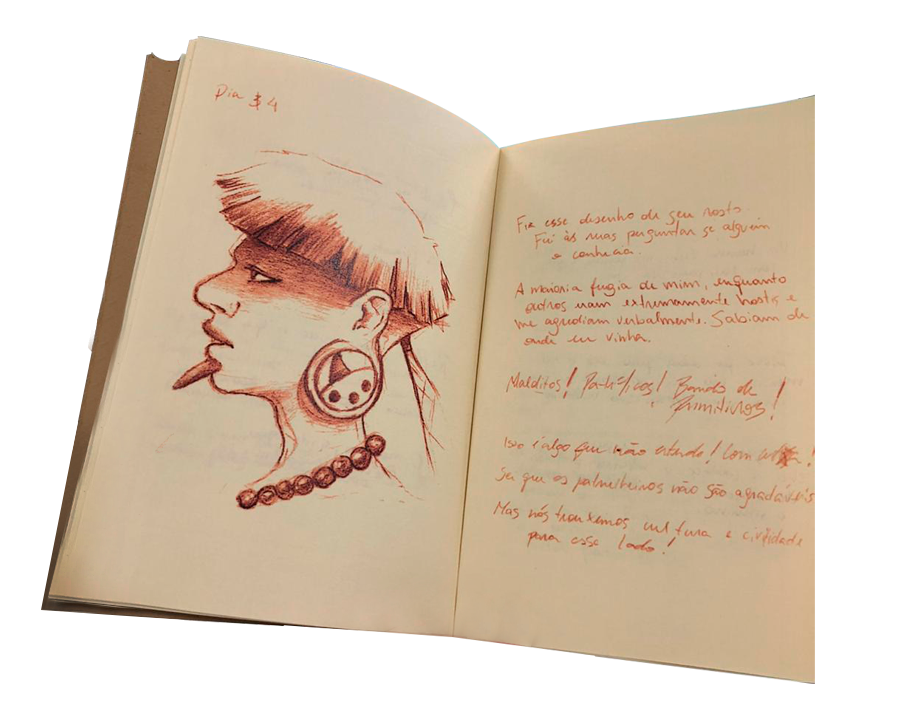 Dia 4
Fiz esse desenho de seu rosto.
Fui às ruas perguntar se alguém
a conhecia.
A maioria fugia de mim, enquanto
outros eram extremamente hostis e
me agrediam verbalmente. Sabiam de
onde eu vinha.
Malditos! Patéticos! Bando de
Primitivos!
Isso é algo que não entendo! Com
Sei que os palmiteiros não são agradáveis
Mas nós trouxemos cultura e
para esse lado!